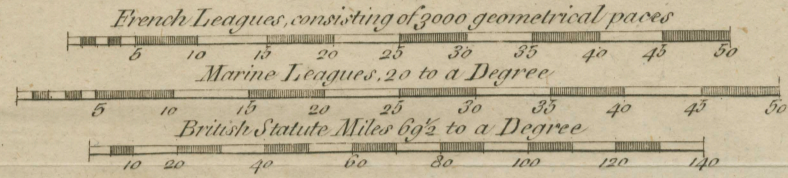 French Leagues, consisting of 3000 geometrical paces
5 10 15 20 25 30 35 40 45 50
Marine Leagues, 20 to a Degree
5 10 15 20 25 30 35 40 45 50
British Statute Miles 69½ to a Degree
10 20 40 60 80 100 120 140